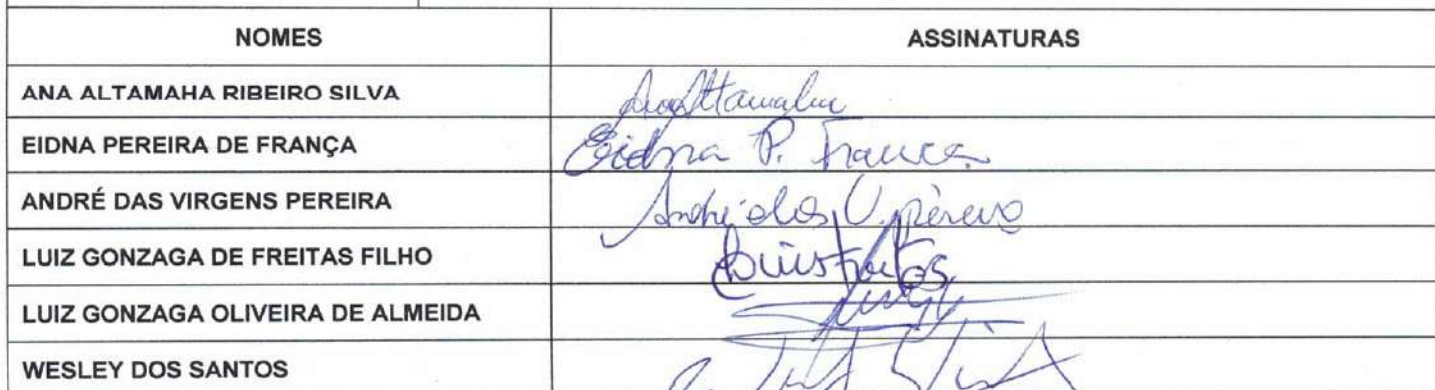 NOMES ASSINATURAS
ANA ALTAMAHA RIBEIRO SILVA AnaAltamaha
EIDNA PEREIRA DE FRANÇA Eidna P. França
ANDRÉ DAS VIRGENS PEREIRA André das V. Pereira
LUIZ GONZAGA DE FREITAS FILHO
LUIZ GONZAGA OLIVEIRA DE ALMEIDA
WESLEY DOS SANTOS